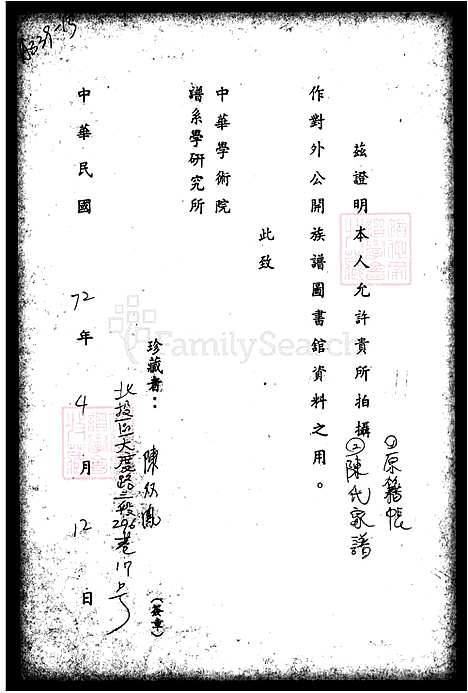 茲證明本人允許貴所拍攝①原籍帳
②陳氏家譜
作對外公開族譜圖書館資料之用。
此致
中華學術院
譜系學研究所
珍藏者：陳 (簽章)
北投區大度路三段296巷17号
中華民國72年4月12日
FamilySearch